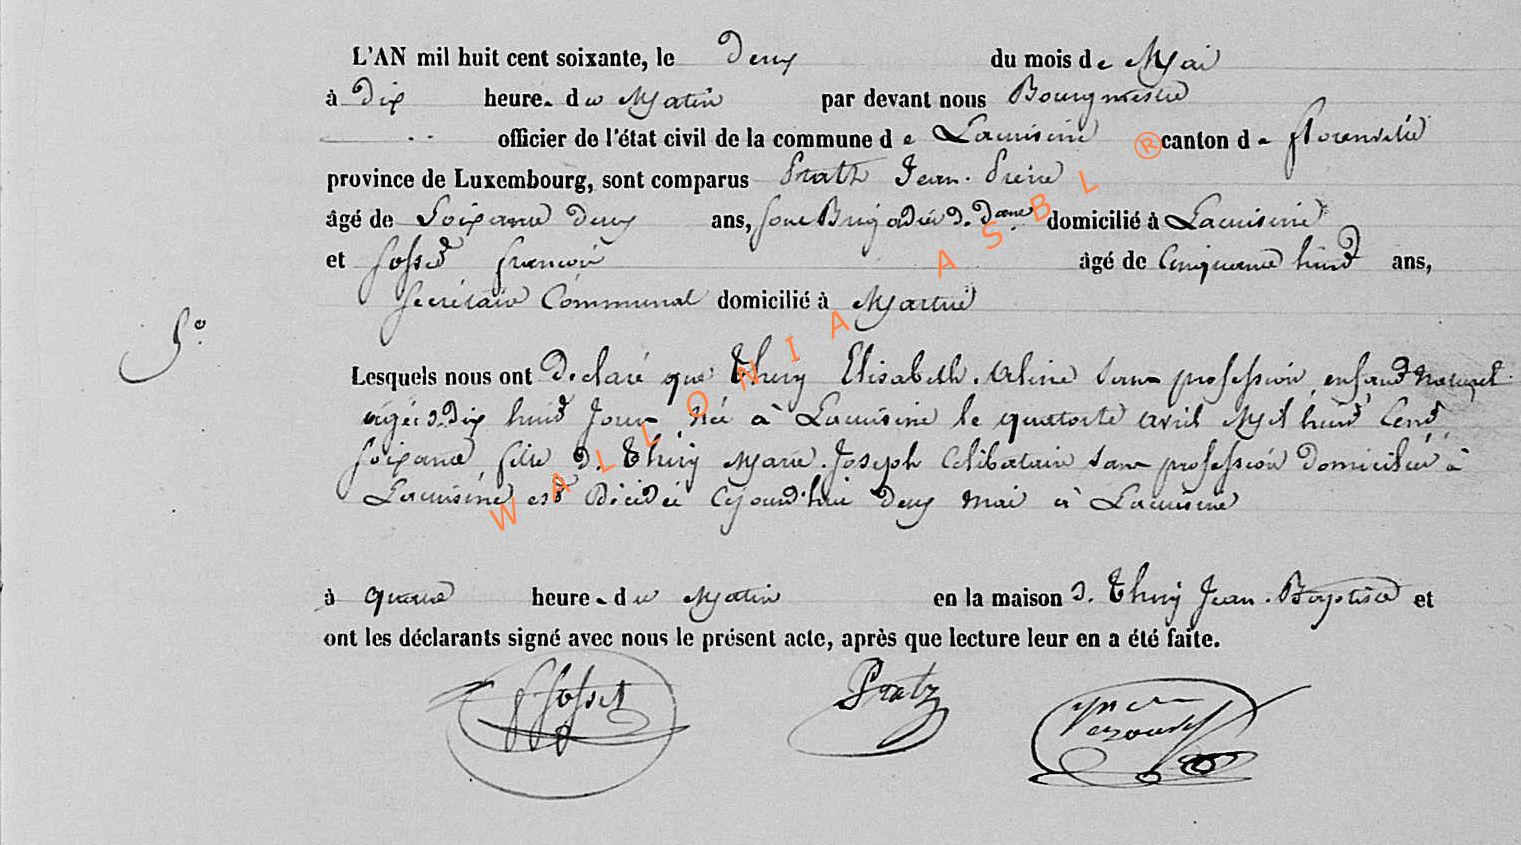 L'AN mil huit cent soixante, le Deux du mois de Mai
à Dix heure. du Matin par devant nous Bourgmestre
officier de l'état civil de la commune de Lacuisine ®canton de florenville
province de Luxembourg, sont comparus Jean. Pierre
âgé de Soixante Deux ans, Sous Brigadier D. Dane domicilié à Lacuisine
et fosset françois âgé de Cinquante huit ans,
Secrétaire Communal domicilié à Martué
5e.
Lesquels nous ont Déclaré que Thiry Elisabeth. Aline Sans profession enfant Naturel
agée D. Dix huit Jours Née à Lacuisine le quatorze avril Mil huit Cent
soixante, fille D. Thiry Marie. Joseph Célibataire Sans profession Domiciliée à
Lacuisine est Décédée Cejourd'hui Deux Mai à Lacuisine
à quatre heure. du Matin en la maison D. Thiry Jean. Baptiste et
ont les déclarants signé avec nous le présent acte, après que lecture leur en a été faite.
fosset Pratz
WALLONIA ASBL